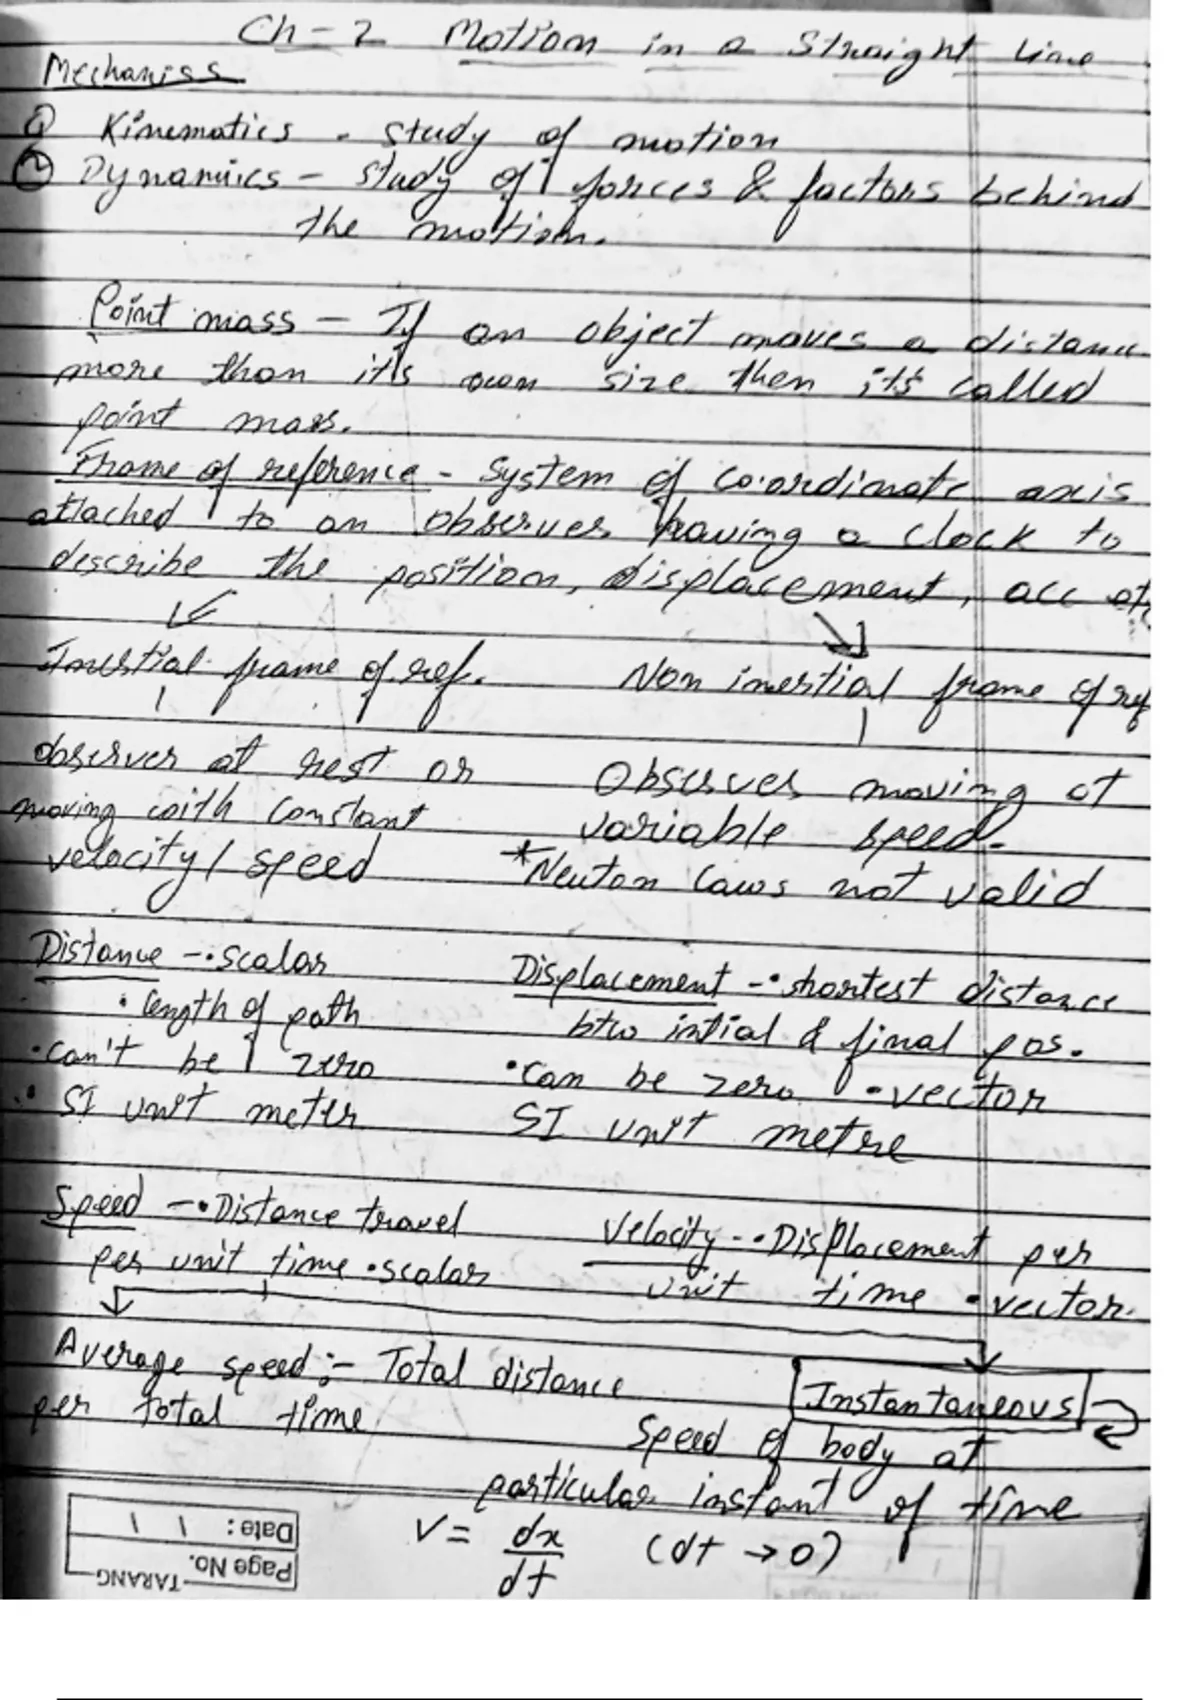 Ch-2 Motion in a Straight Line
Mechaniss
① Kinematics - study of motion
② Dynamics - study of forces & factors behind
the motion.
Point mass - If an object moves a distance
more than it's own size then it's called
point mass.
Frame of reference - System of co.ordinate axis
attached to an observer having a clock to
describe the position, displacement, acc etc
Inertial frame of ref.
Non inertial frame of ref
observer at rest or
moving with constant
velocity / speed
Observer moving at
variable speed.
*Newton laws not valid
Distance -• scalar
• length of path
• can't be zero
• SI unit meter
Displacement -• shortest distance
btw intial & final pos.
• can be zero • vector
SI unit metre
Speed -• Distance travel
per unit time • scalar
Velocity - • Displacement per
unit time • vector.
Average speed :- Total distance
per total time
Instantaneous
Speed of body at
particular instant of time
V = dx/dt (dt → 0)
TARANG
Page No.
Date: